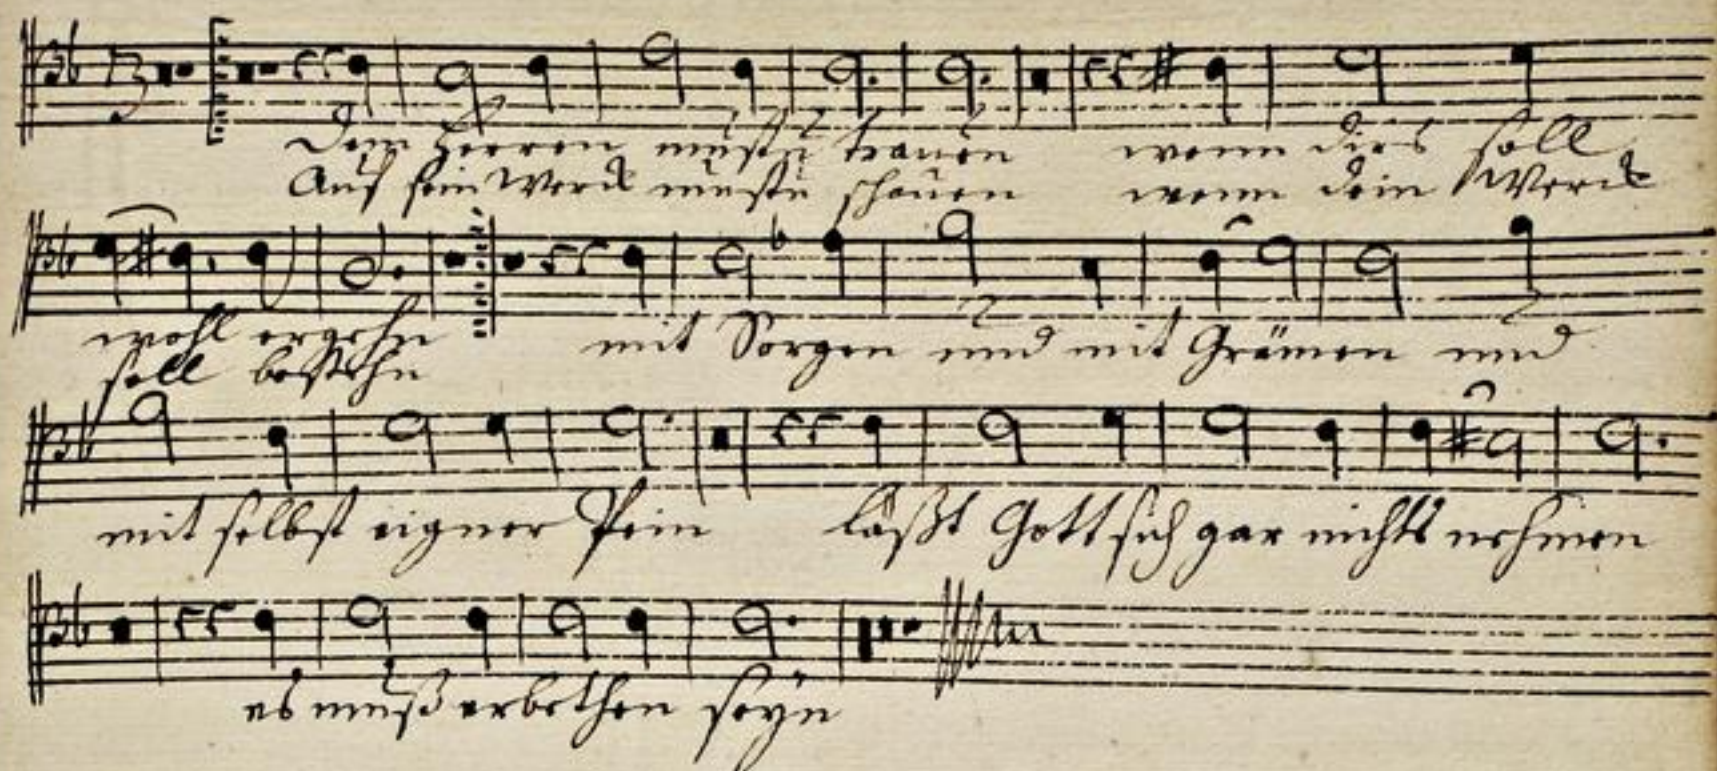 Dem Herren mustu trauen wenn dirs soll
Auf sein Werck mustu schauen wenn dein Werck
wohl ergehn mit Sorgen und mit Grämen und
soll bestehn
mit selbst eigner Pein läßt Gott sich gar nichts nehmen
es muß erbethen seyn